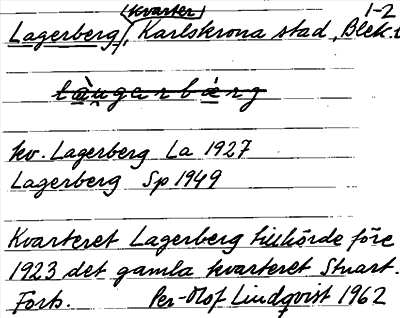 (kvarter) 1-2
Lagerberg, Karlskrona stad, Blek.
kv. Lagerberg La 1927
Lagerberg Sp 1949
Kvarteret Lagerberg tillhörde före
1923 det gamla kvarteret Stuart.
Forts. Per-Olof Lindqvist 1962